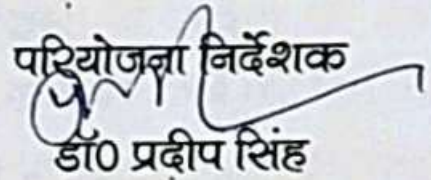 परियोजना निर्देशक
डॉ0 प्रदीप सिंह